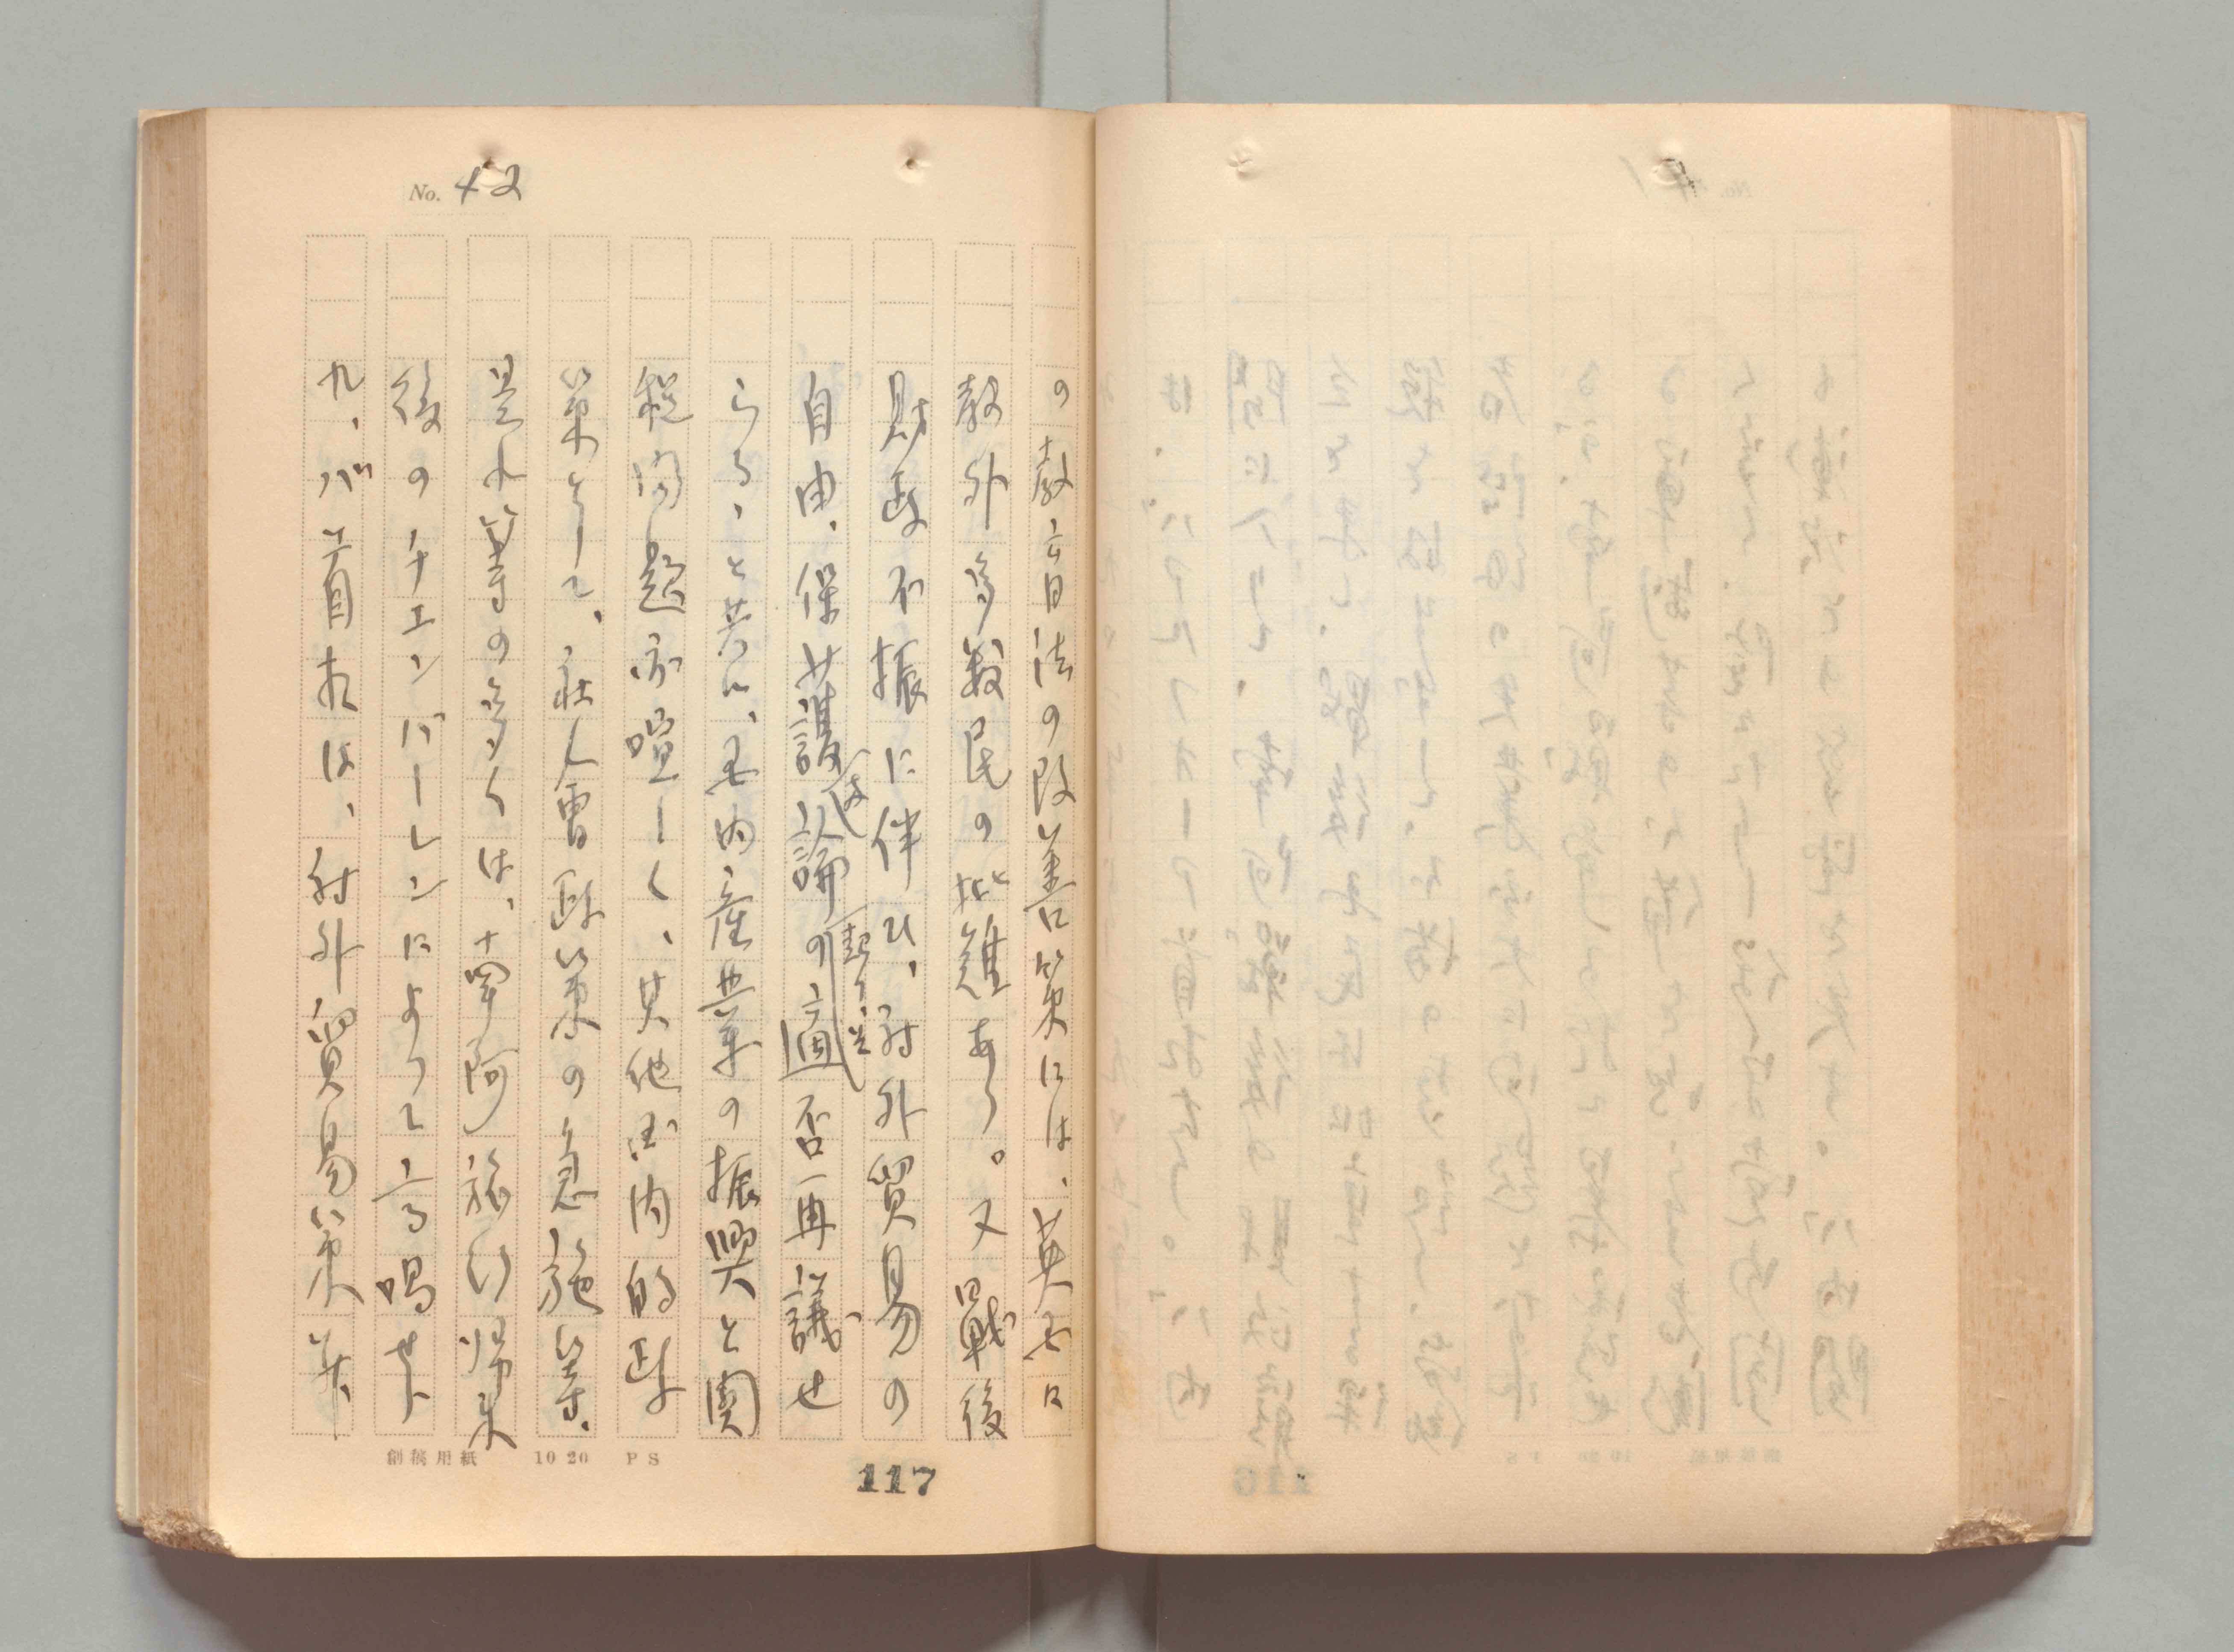 No. 42
の教育法の改善策には、英国に
教外多数民の批難あり。又戦後
財政不振に伴ひ、対外貿易の
自由、保護論の適否再議せ
らるゝと共に、国内産業の振興と関
税問題亦喧しく、其他国内的政
策として、社会政策の急施等、
是れ等の多くは、南阿旅行帰来
後のチエンバーレンによつて高唱せら
れ、バ首相は、対外貿易策并
創稿用紙 10 20 PS
117